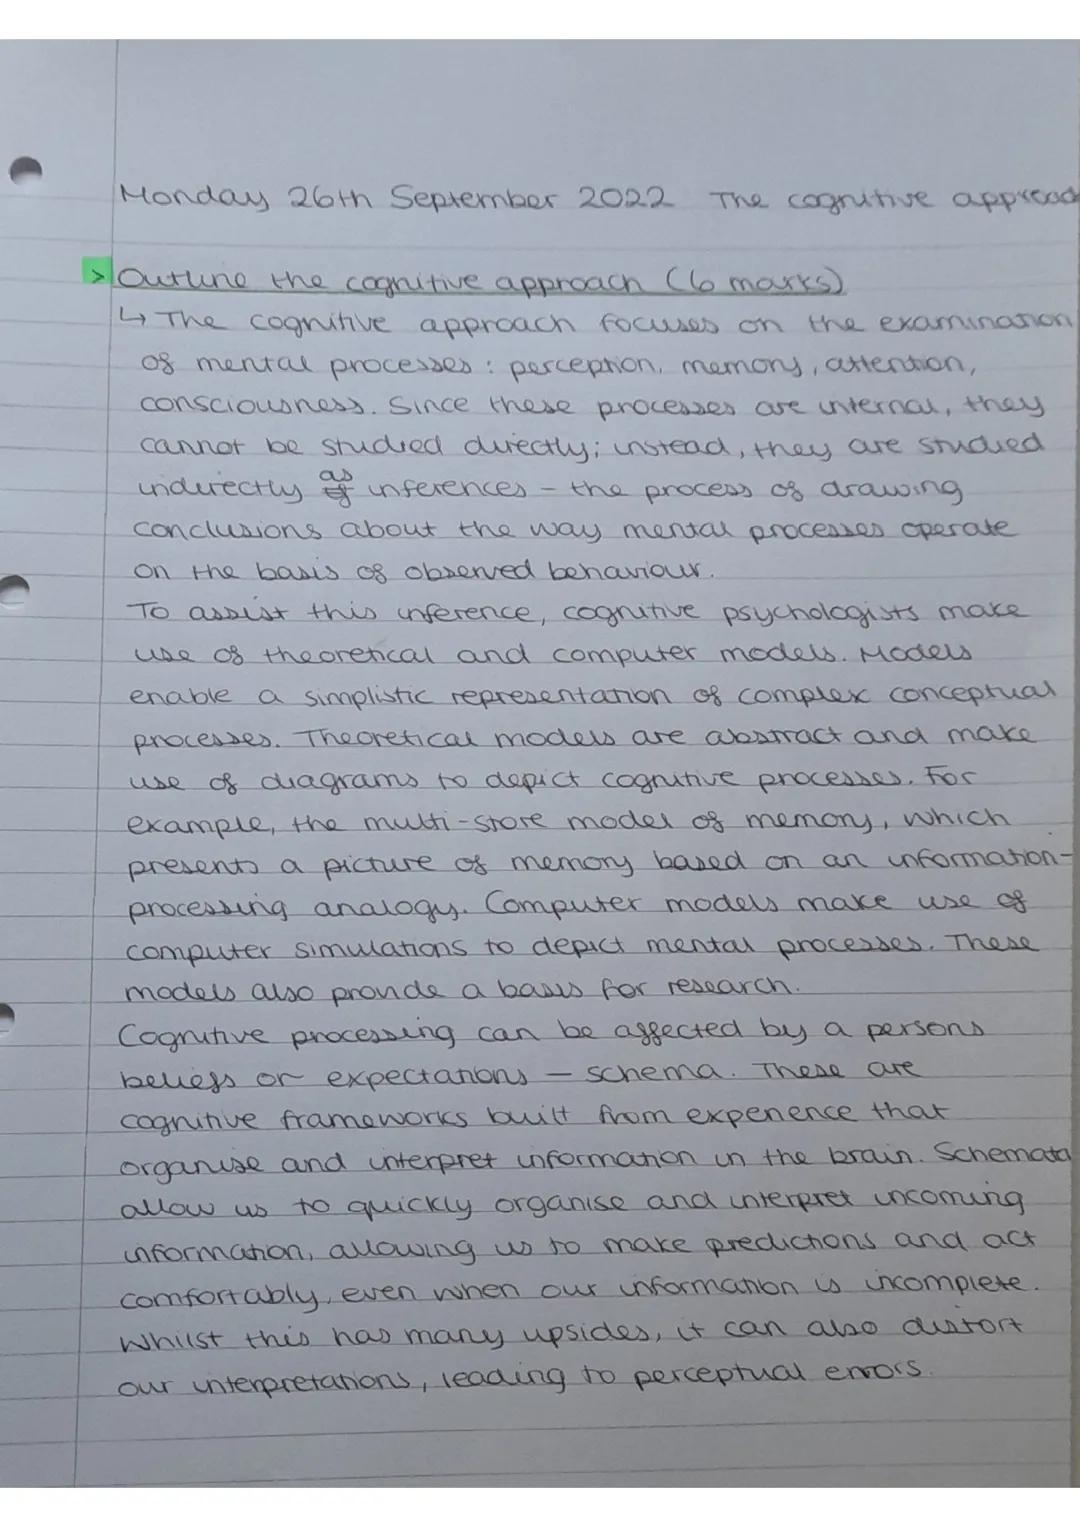 Monday 26th September 2022 The cognitive approach
> Outline the cognitive approach (6 marks)
↳ The cognitive approach focuses on the examination
of mental processes: perception, memory, attention,
consciousness. Since these processes are internal, they
cannot be studied directly; instead, they are studied
indirectly as inferences - the process of drawing
conclusions about the way mental processes operate
on the basis of observed behaviour.
To assist this inference, cognitive psychologists make
use of theoretical and computer models. Models
enable a simplistic representation of complex conceptual
processes. Theoretical models are abstract and make
use of diagrams to depict cognitive processes. For
example, the multi-store model of memory, which
presents a picture of memory based on an information-
processing analogy. Computer models make use of
computer simulations to depict mental processes. These
models also provide a basis for research.
Cognitive processing can be affected by a persons
beliefs or expectations - schema. These are
cognitive frameworks built from experience that
organise and interpret information in the brain. Schemata
allow us to quickly organise and interpret incoming
information, allowing us to make predictions and act
comfortably, even when our information is incomplete.
Whilst this has many upsides, it can also distort
our interpretations, leading to perceptual errors.